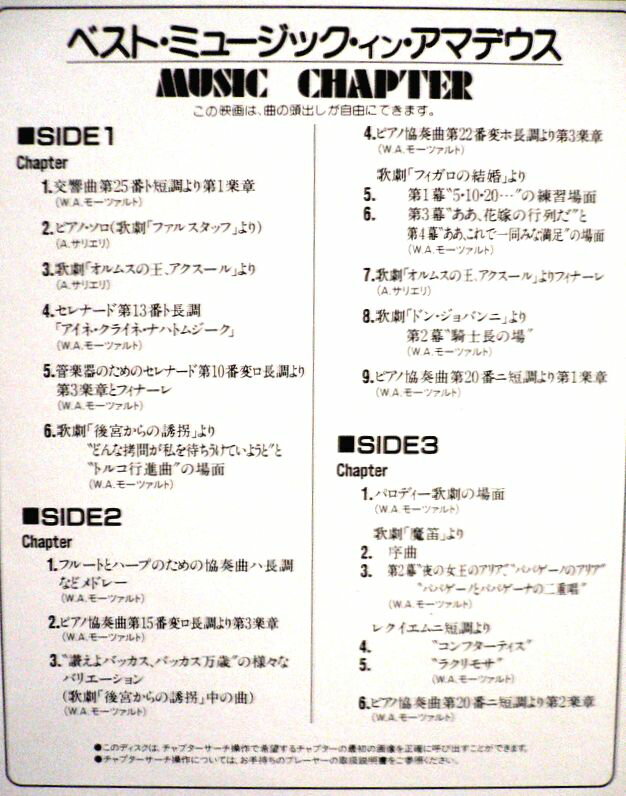 ベスト・ミュージック・イン・アマデウス
MUSIC CHAPTER
この映画は、曲の頭出しが自由にできます。
■SIDE1
Chapter
1.交響曲第25番ト短調より第1楽章
(W.A.モーツァルト)
2.ピアノ・ソロ(歌劇「ファルスタッフ」より)
(A.サリエリ)
3.歌劇「オルムスの王、アクスール」より
(A.サリエリ)
4.セレナード第13番ト長調
「アイネ・クライネ・ナハトムジーク」
(W.A.モーツァルト)
5.管楽器のためのセレナード第10番変ロ長調より
第3楽章とフィナーレ
(W.A.モーツァルト)
6.歌劇「後宮からの誘拐」より
"どんな拷問が私を待ちうけていようと"と
"トルコ行進曲"の場面
(W.A.モーツァルト)
■SIDE2
Chapter
1.フルートとハープのための協奏曲ハ長調
などメドレー
(W.A.モーツァルト)
2.ピアノ協奏曲第15番変ロ長調より第3楽章
(W.A.モーツァルト)
3."讃えよバッカス、バッカス万歳"の様々な
バリエーション
(歌劇「後宮からの誘拐」中の曲)
(W.A.モーツァルト)
4.ピアノ協奏曲第22番変ホ長調より第3楽章
(W.A.モーツァルト)
歌劇「フィガロの結婚」より
5. 第1幕"5・10・20…"の練習場面
6. 第3幕"ああ、花嫁の行列だ"と
第4幕"ああ、これで一同みな満足"の場面
(W.A.モーツァルト)
7.歌劇「オルムスの王、アクスール」よりフィナーレ
(A.サリエリ)
8.歌劇「ドン・ジョバンニ」より
第2幕"騎士長の場"
(W.A.モーツァルト)
9.ピアノ協奏曲第20番ニ短調より第1楽章
(W.A.モーツァルト)
■SIDE3
Chapter
1.パロディー歌劇の場面
(W.A.モーツァルト)
歌劇「魔笛」より
2. 序曲
3. 第2幕"夜の女王のアリア"、"パパゲーノのアリア"
"パパゲーノとパパゲーナの二重唱"
(W.A.モーツァルト)
レクイエムニ短調より
4. "コンフターティス"
5. "ラクリモサ"
(W.A.モーツァルト)
6.ピアノ協奏曲第20番ニ短調より第2楽章
(W.A.モーツァルト)
●このディスクは、チャプターサーチ操作で希望するチャプターの最初の画像を正確に呼び出すことができます。
●チャプターサーチ操作については、お手持ちのプレーヤーの取扱説明書をご参照ください。